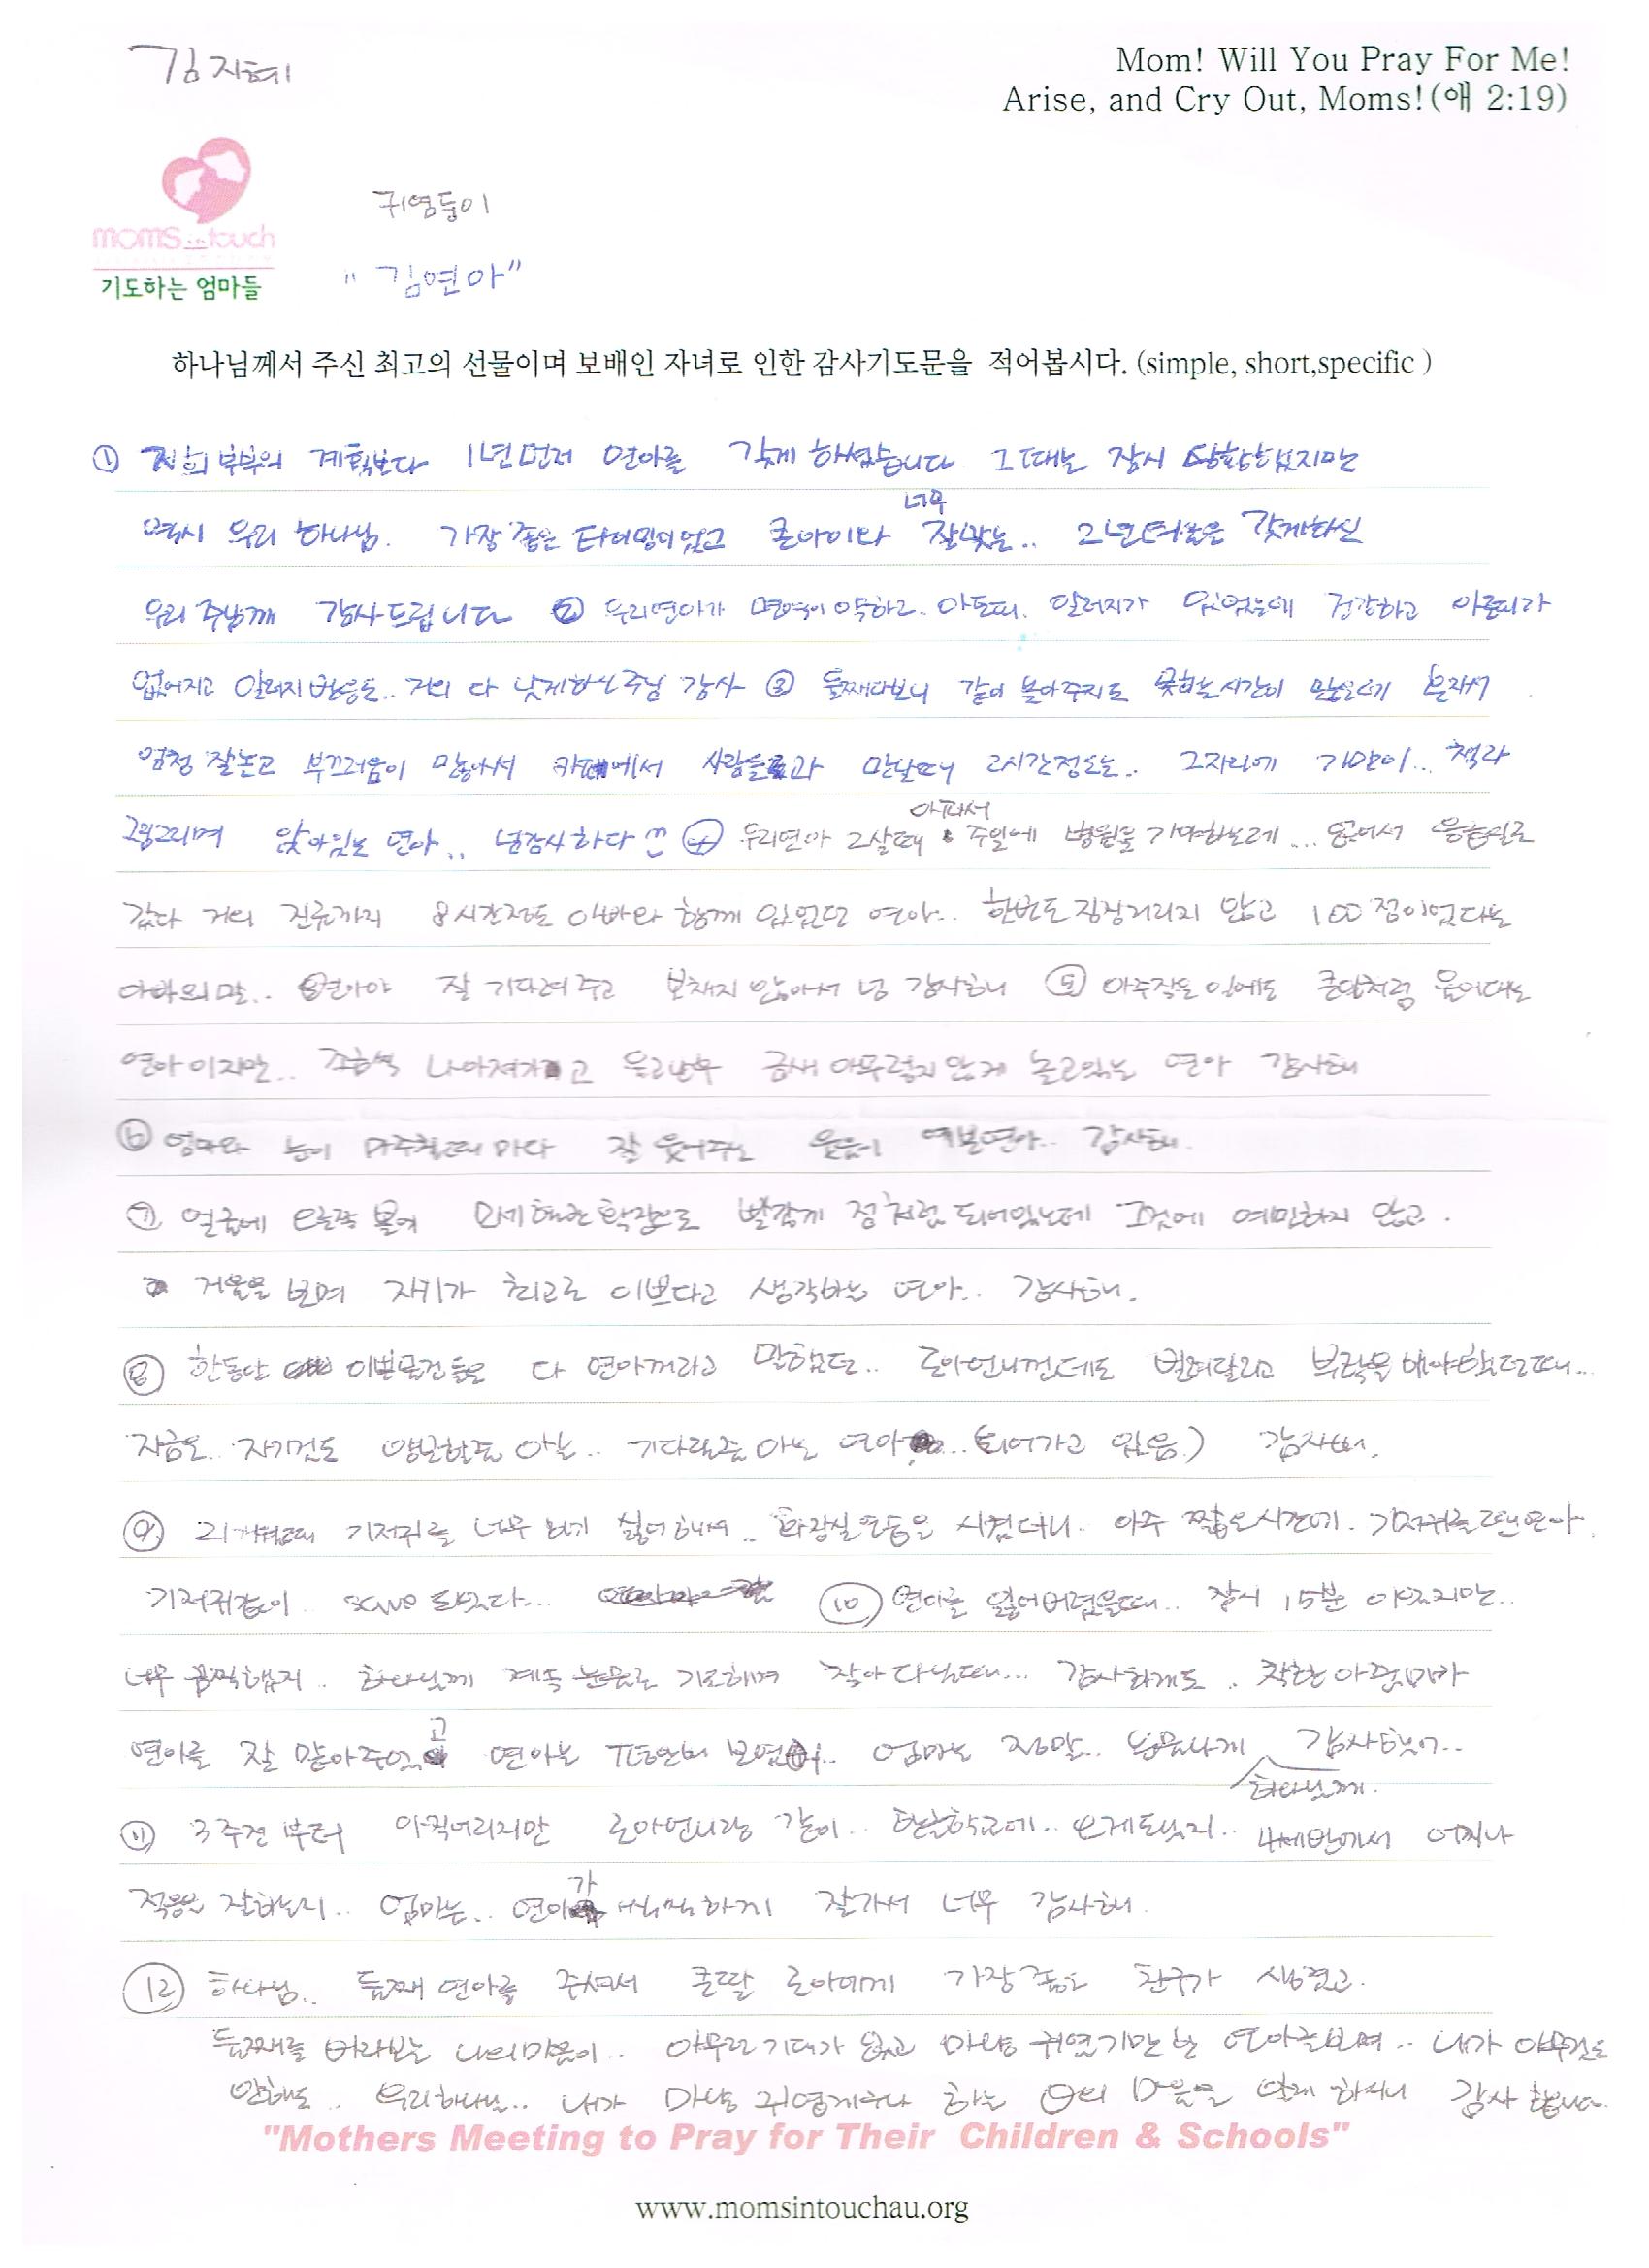 김지혜
Mom! Will You Pray For Me!
Arise, and Cry Out, Moms!(애 2:19)
moms in touch
기도하는 엄마들
귀염둥이
"김연아"
하나님께서 주신 최고의 선물이며 보배인 자녀로 인한 감사기도문을 적어봅시다. (simple, short,specific )
① 저희 부부의 계획보다 1년 먼저 연아를 갖게 하셨습니다 그때는 잠시 당황했지만
너무
역시 우리 하나님. 가장 좋은 타이밍이었고 큰아이와 잘맞는.. 2년터울은 갖게하신
우리 주님께 감사드립니다 ② 우리연아가 면역이 약하고. 아토피. 알러지가 있었는데 건강하고 아토피가
없어지고 알러지반응도.. 거의 다 낫게하신 주님 감사 ③ 둘째다보니 같이 놀아주지도 못하는시간이 많은데 혼자서
엄청 잘놀고 부끄러움이 많아서 카페에서 사람들과 만날때 2시간정도는.. 그자리에 가만히... 책과
그림그리며 앉아있는 연아.. 넘감사하다 ④ 우리연아 2살때 아파서 주일에 병원을 가야하는데... 응급실로
갔다 거의 진료까지 8시간정도 아빠와 함께 있었던 연아.. 한번도 징징거리지 않고 100점이었다는
아빠의 말.. 연아야 잘 기다려주고 보채지 않아서 넘 감사해 ⑤ 아주작은 일에도 큰일처럼 울어대는
연아이지만.. 조금씩 나아져가고 울고난후 금새 아무렇지 않게 놀고있는 연아 감사해
⑥ 엄마와 눈이 마주칠때 마다 잘 웃어주는 웃음이 예쁜연아.. 감사해.
⑦ 얼굴에 빨갛게 점처럼 되어있는데 그것에 예민하지 않고.
거울을 보며 자기가 최고로 이쁘다고 생각하는 연아.. 감사해.
⑧ 한동안 이쁜물건들은 다 연아꺼라고 말했던.. 로아언니껀데도 빌려달라고 부탁을 해야했던때...
지금은.. 자기것도 양보할줄 아는.. 기다릴줄 아는 연아...(되어가고 있음.) 감사해.
⑨ 기저귀를 너무 싫어해서.. 화장실연습을 시켰더니. 아주 짧은시간에. 기저귀를 뗀연아.
기저귀값이.. save 되었다... ⑩ 연아를 잃어버렸을때.. 잠시 15분 이었지만..
너무 끔찍했지.. 하나님께 계속 눈물로 기도하며 찾아다닐때... 감사하게도.. 착한 아줌마가
연아를 잘 맡아주었고 연아는 보였어.. 엄마는 정말.. 눈물나게 하나님께. 감사했어..
⑪ 3주전 부터 아직어리지만 로아언니랑 같이.. 한글학교에.. 오게되었지.. 4세반에서 어찌나
적응을 잘하는지.. 엄마는.. 연아가 씩씩하게 잘가서 너무 감사해.
⑫ 하나님.. 둘째 연아를 주셔서 큰딸 로아에게 가장 좋은 친구가 생겼고.
둘째를 바라보는 나의마음이.. 아무런 기대가 없고 마냥 귀엽기만 한 연아를보며.. 내가 아무것도
안해도.. 우리하나님.. 내가 마냥 귀엽게 하는 의 마음을 알게 하시니 감사 합니다.
"Mothers Meeting to Pray for Their Children & Schools"
www.momsintouchau.org